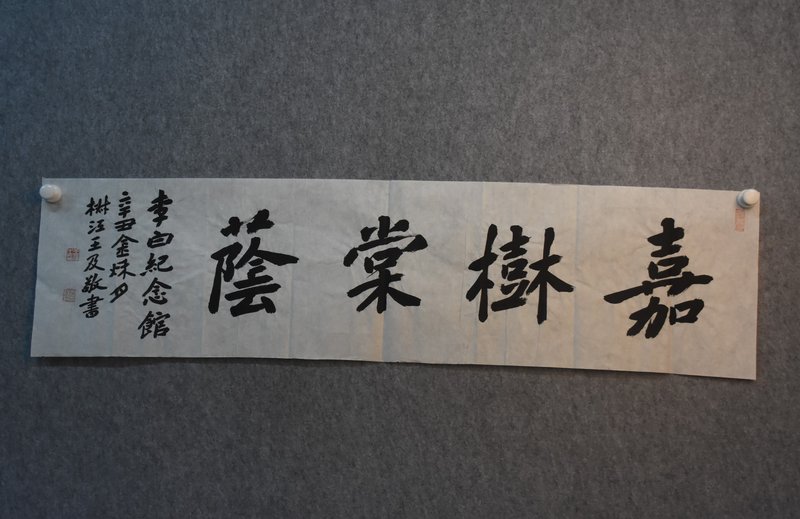 嘉樹棠蔭
李白紀念館
辛丑金秋月
江王及敬書